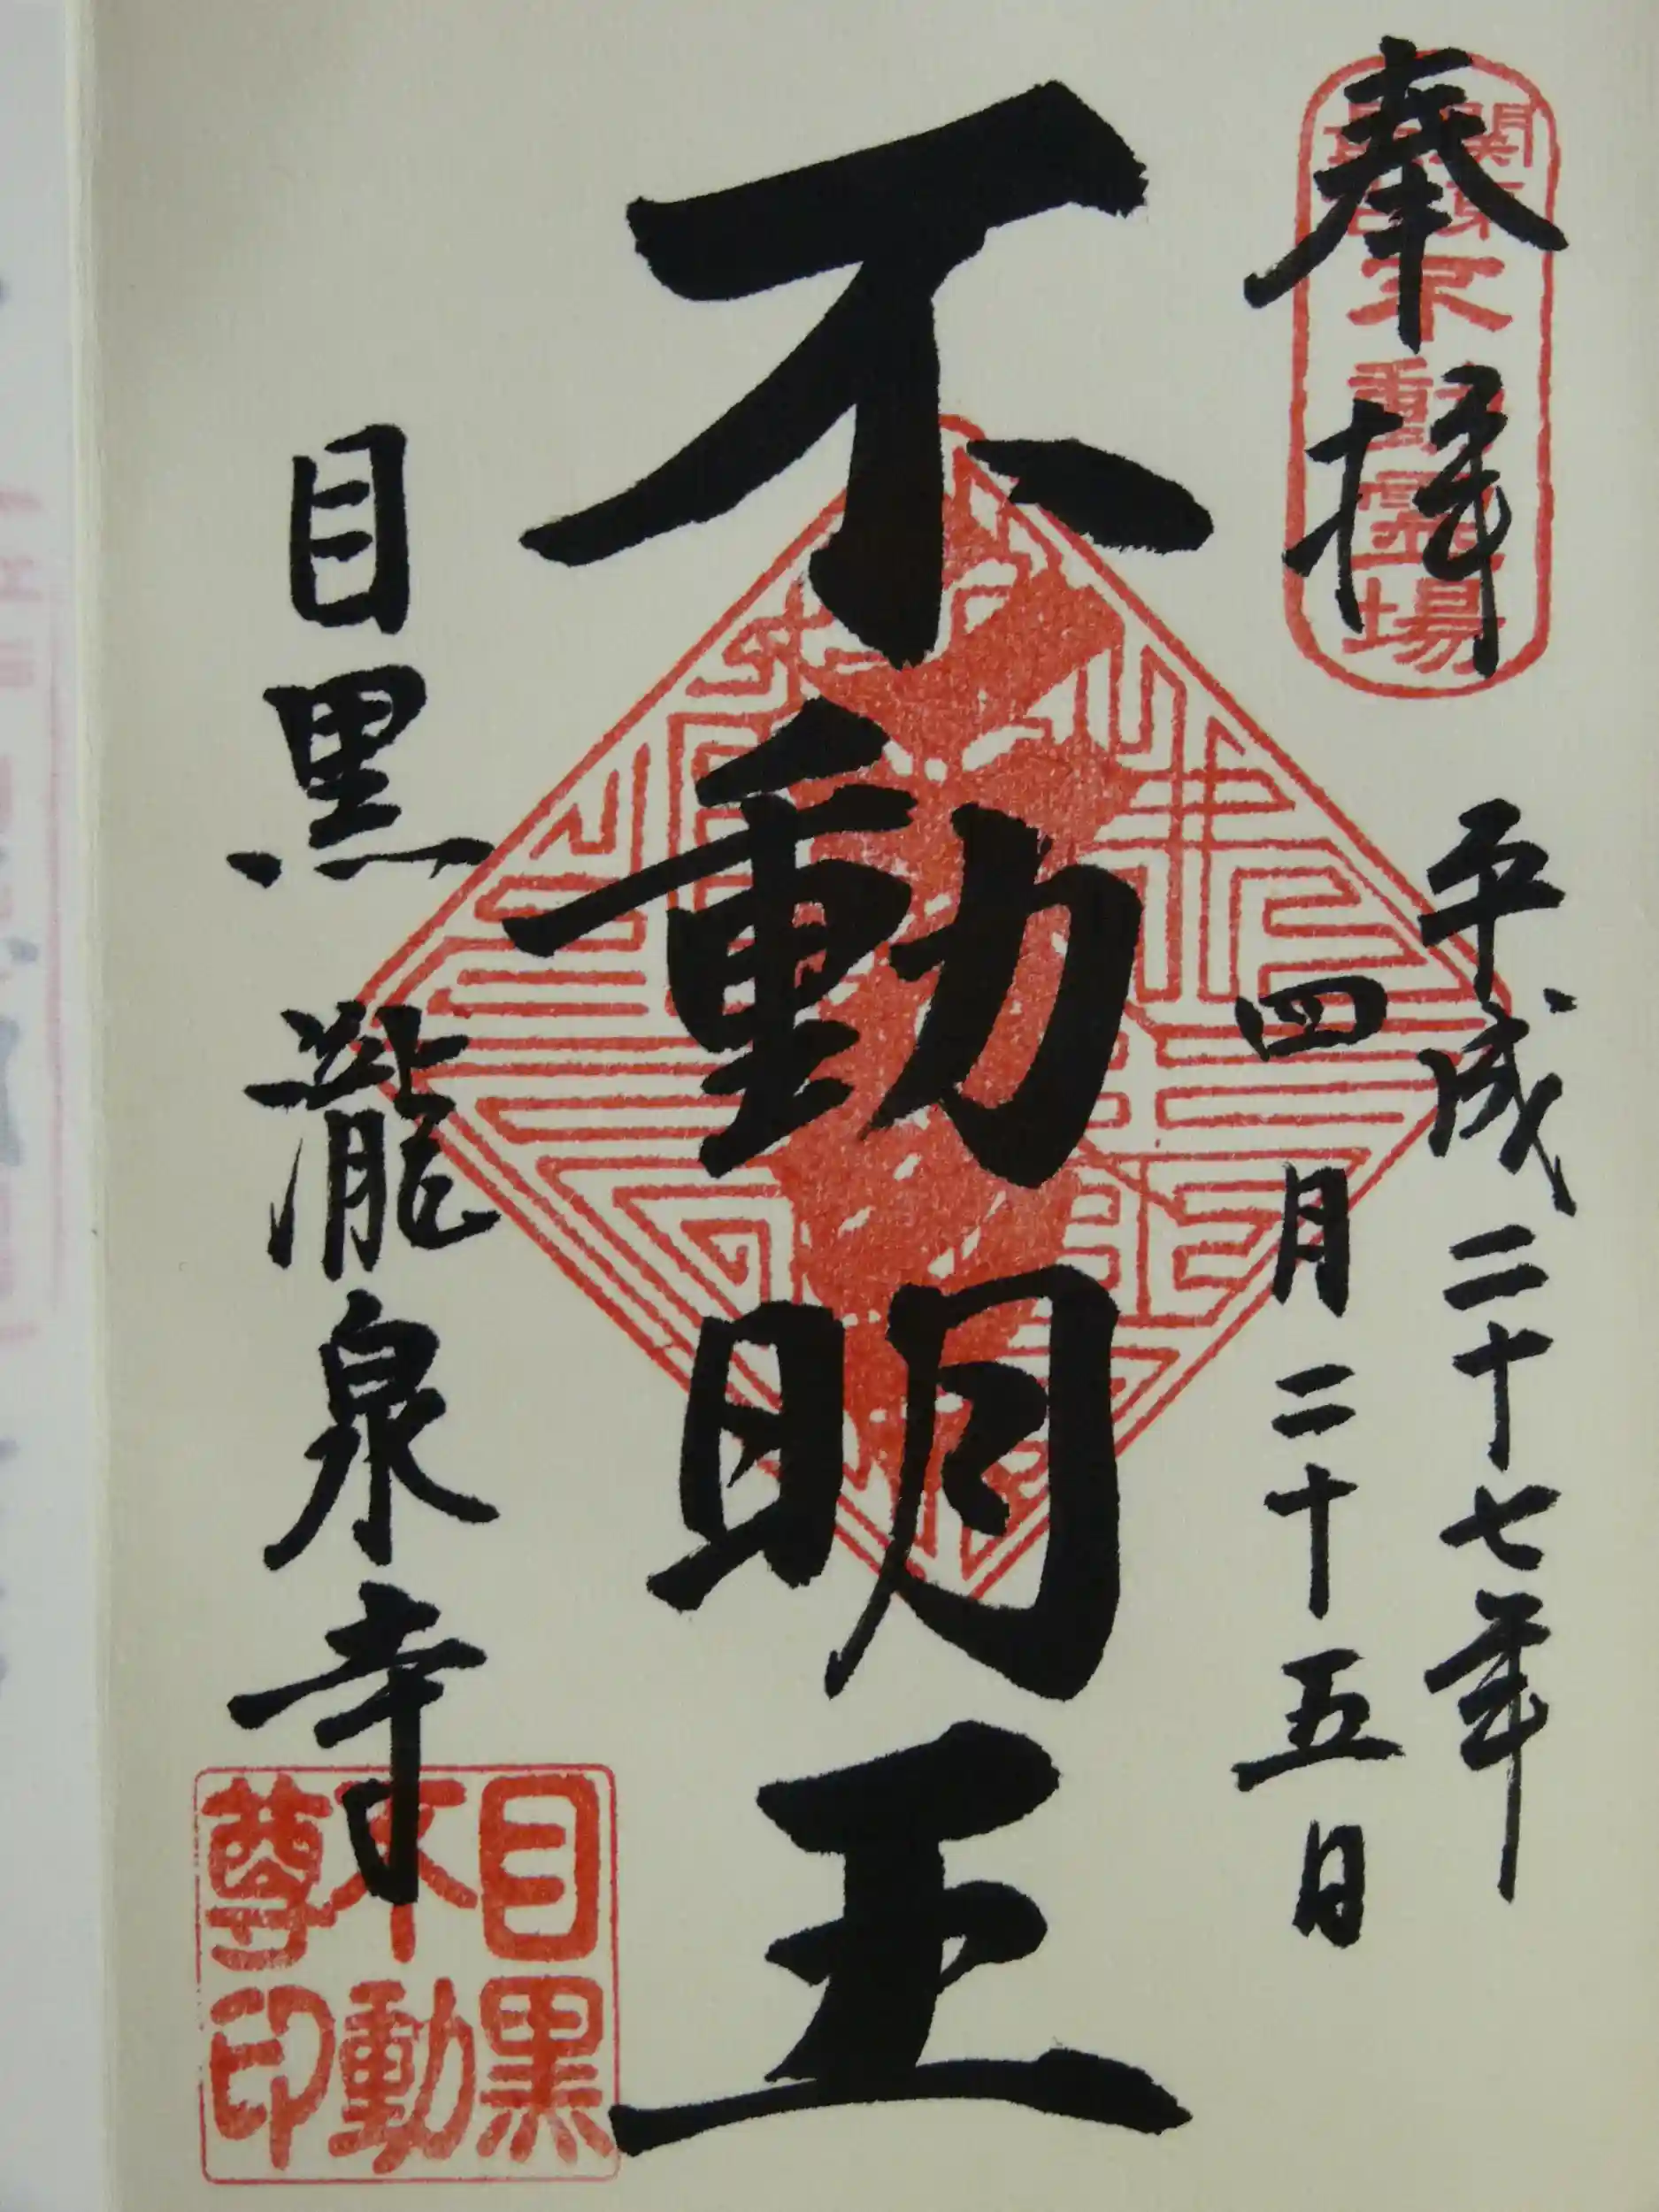 奉拝
関東
不動霊場
平成二十七年
四月二十五日
不動明王
目黒 瀧泉寺
目黒
不動
尊印